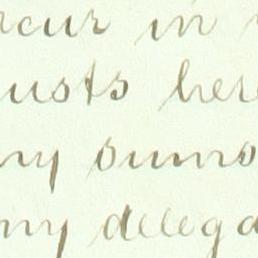 rcur in
usts here
ny sums
ny delega